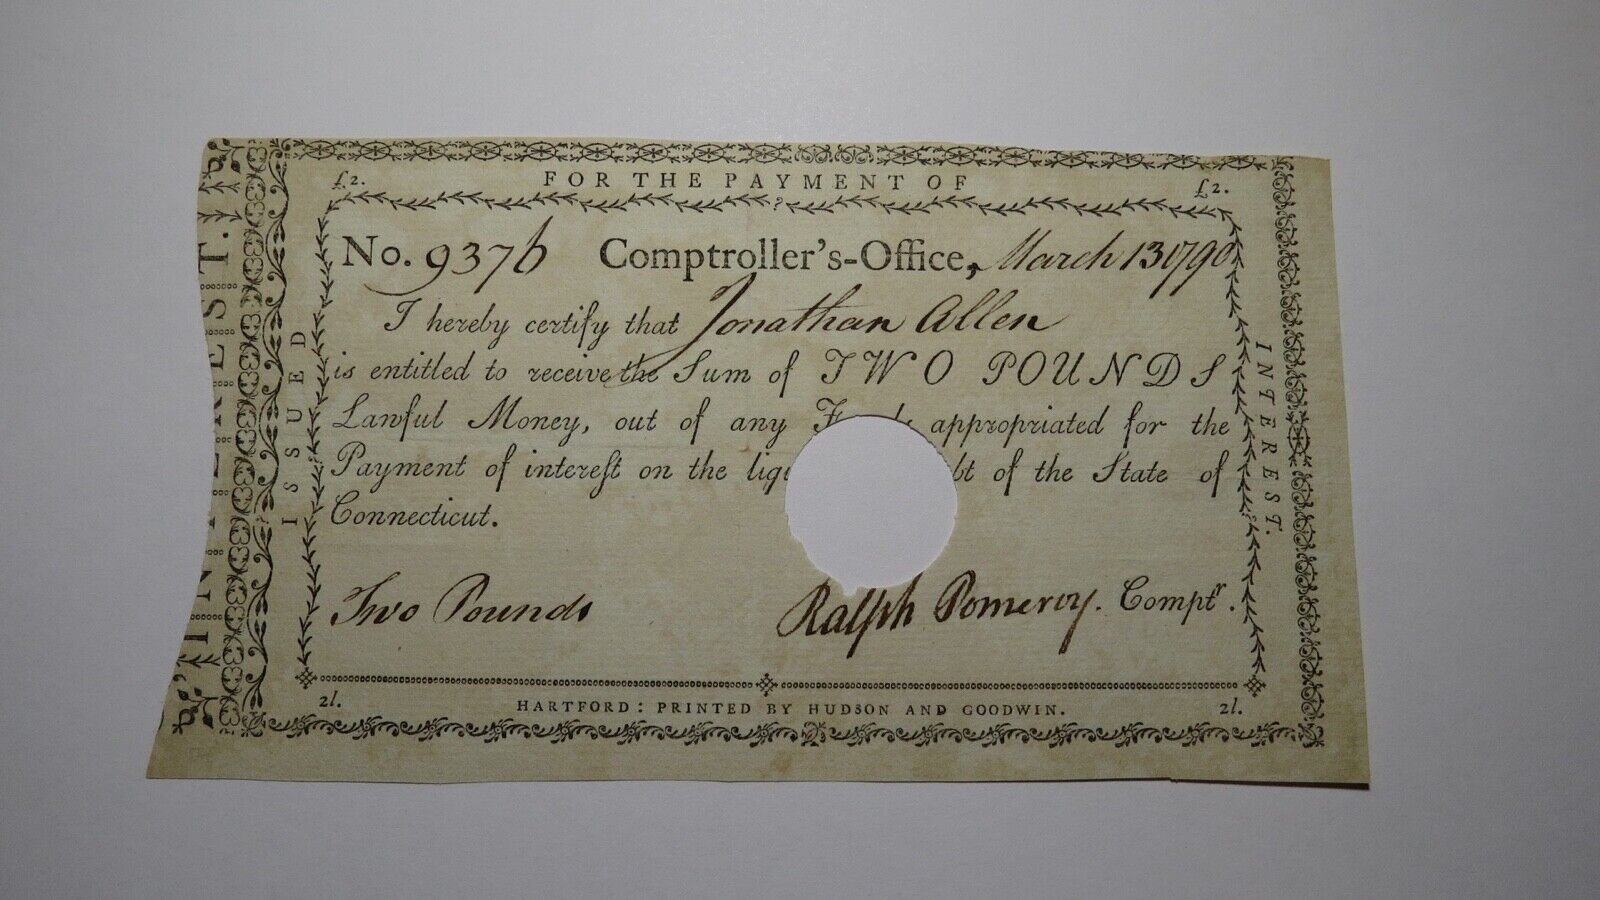 £2. FOR THE PAYMENT OF £2.
No. 9376 Comptroller's-Office, March 13 1790
I hereby certify that Jonathan Allen
is entitled to receive the Sum of TWO POUNDS
Lawful Money, out of any appropriated for the
Payment of interest on the of the State of
Connecticut.
Two Pounds Ralph Pomeroy. Comptr.
2l. HARTFORD: PRINTED BY HUDSON AND GOODWIN. 2l.
ISSUED
INTEREST.
INTEREST.